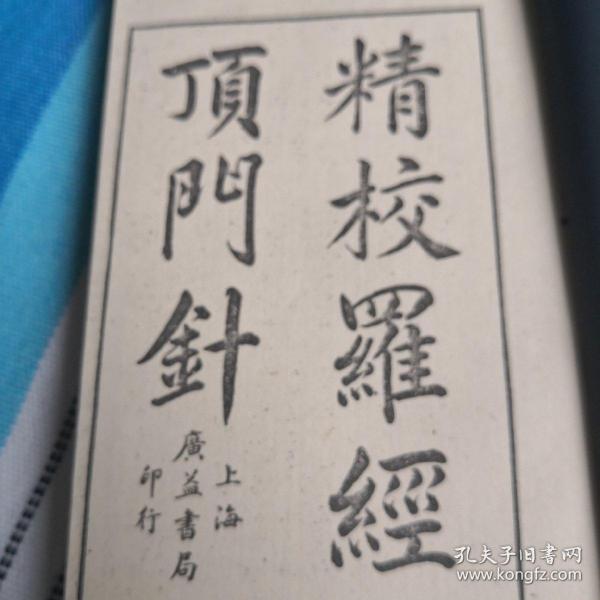 精校羅經
頂門針
上海
廣益書局
印行
孔夫子旧书网
www.kongfz.com